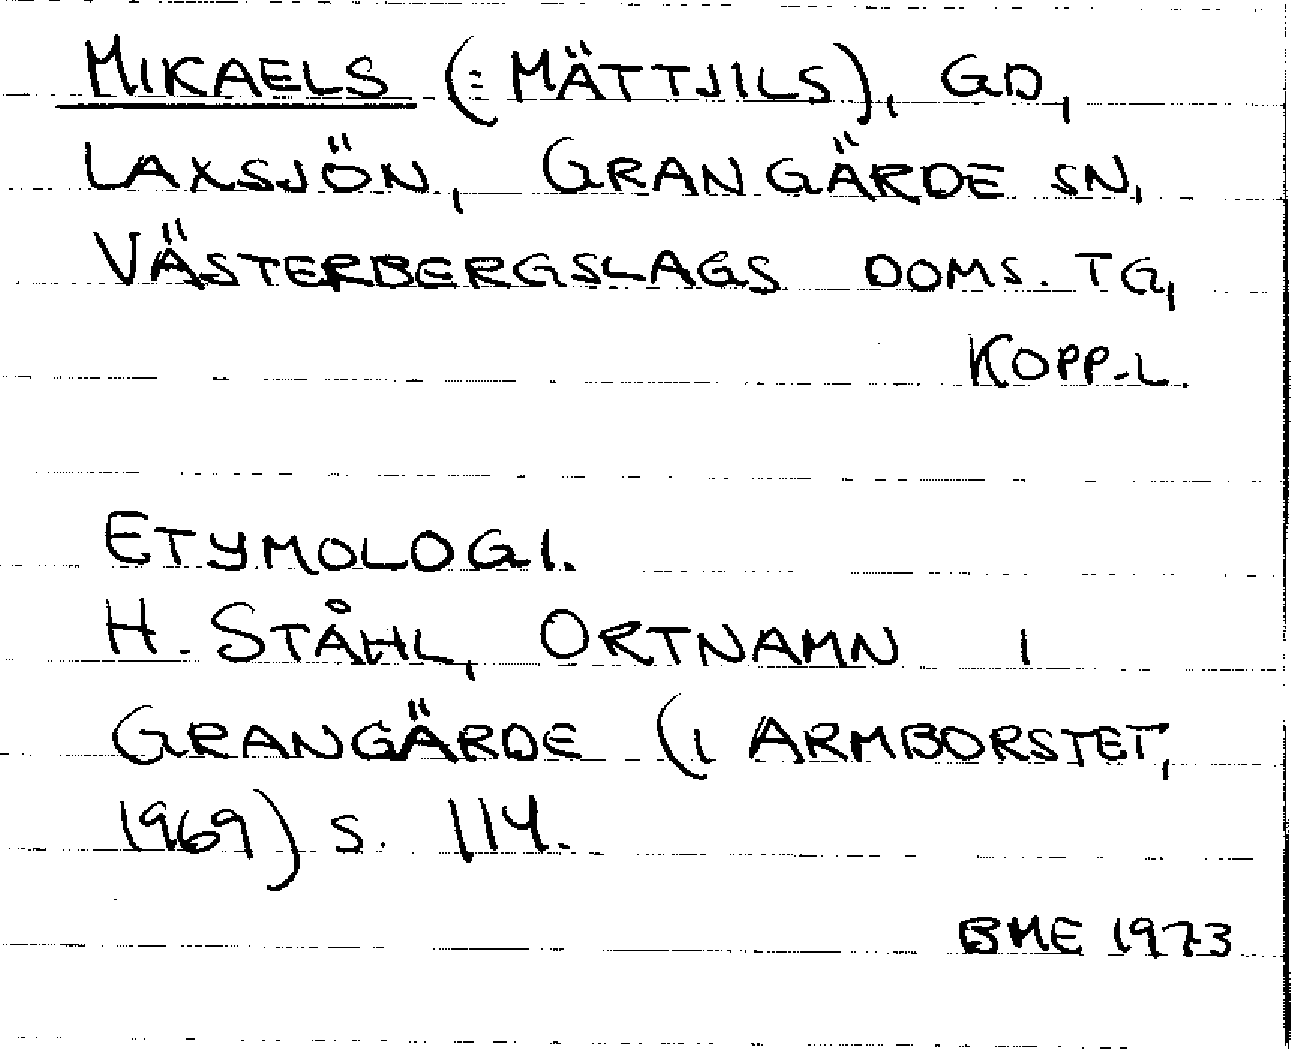 MIKAELS (= MÄTTJILS), GD,
LAXSJÖN, GRANGÄRDE SN,
VÄSTERBERGSLAGS DOMS. TG,
KOPP-L.
ETYMOLOGI.
H. STÅHL, ORTNAMN I
GRANGÄRDE (I ARMBORSTET,
1969) S. 114.
BME 1973